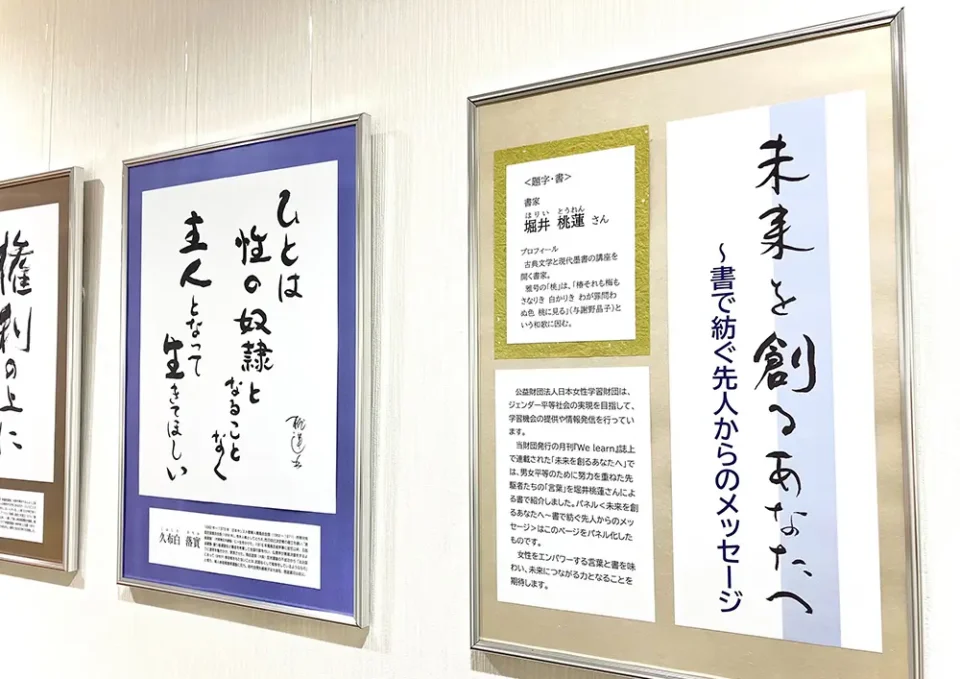 未来を創るあなたへ
~書で紡ぐ先人からのメッセージ
<題字・書>
書家
はりい とうれん
堀井 桃蓮 さん
プロフィール
古典文学と現代墨書の講座を
開く書家。
雅号の「桃」は、「椿それも梅も
さなりき 白かりき わが罪問わ
ぬ色 桃に見る」(与謝野晶子)と
いう和歌に因む。
公益財団法人日本女性学習財団は、
ジェンダー平等社会の実現を目指して、
学習機会の提供や情報発信を行ってい
ます。
当財団発行の月刊『We learn』誌上
で連載された「未来を創るあなたへ」で
は、男女平等のために努力を重ねた先
駆者たちの「言葉」を堀井桃蓮さんによ
る書で紹介しました。パネル<未来を創
るあなたへ~書で紡ぐ先人からのメッ
セージ>はこのページをパネル化した
ものです。
女性をエンパワーする言葉と書を味
わい、未来につながる力となることを
期待します。
ひとは
性の奴隷と
なること
なく
主人となって
生きてほしい
久布白 落實
権利の上に